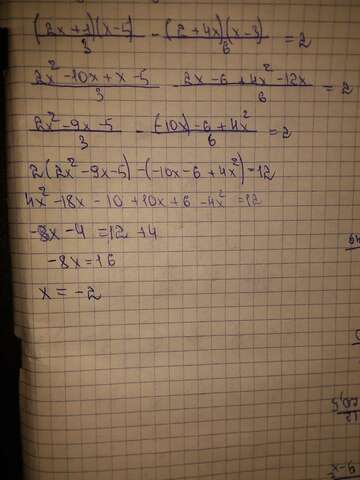 (2x+1)(x-5)/3 - (2+4x)(x-3)/6 = 2
2x²-10x+x-5/3 - 2x-6+4x²-12x/6 = 2
2x²-9x-5/3 - (-10x)-6+4x²/6 = 2
2(2x²-9x-5)-(-10x-6+4x²)=12
4x²-18x-10+10x+6-4x²=12
-8x-4=12+4
-8x=16
x=-2